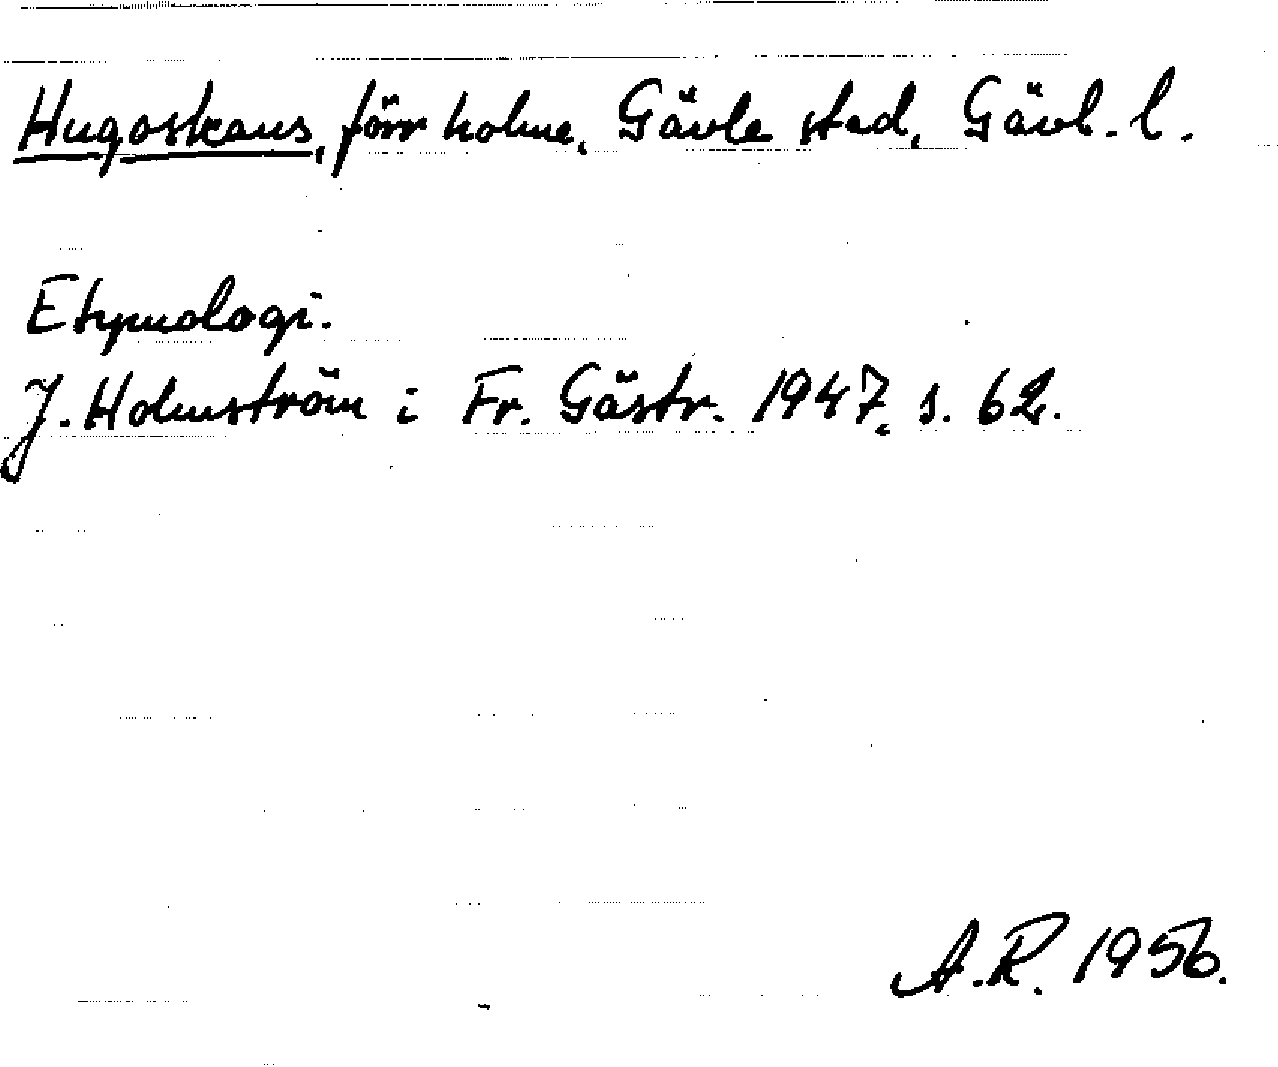 Hugoskans, förr holme, Gävle stad, Gävl. l.
Etymologi.
J. Holmström i Fr. Gästr. 1947, s. 62.
A.R. 1956.